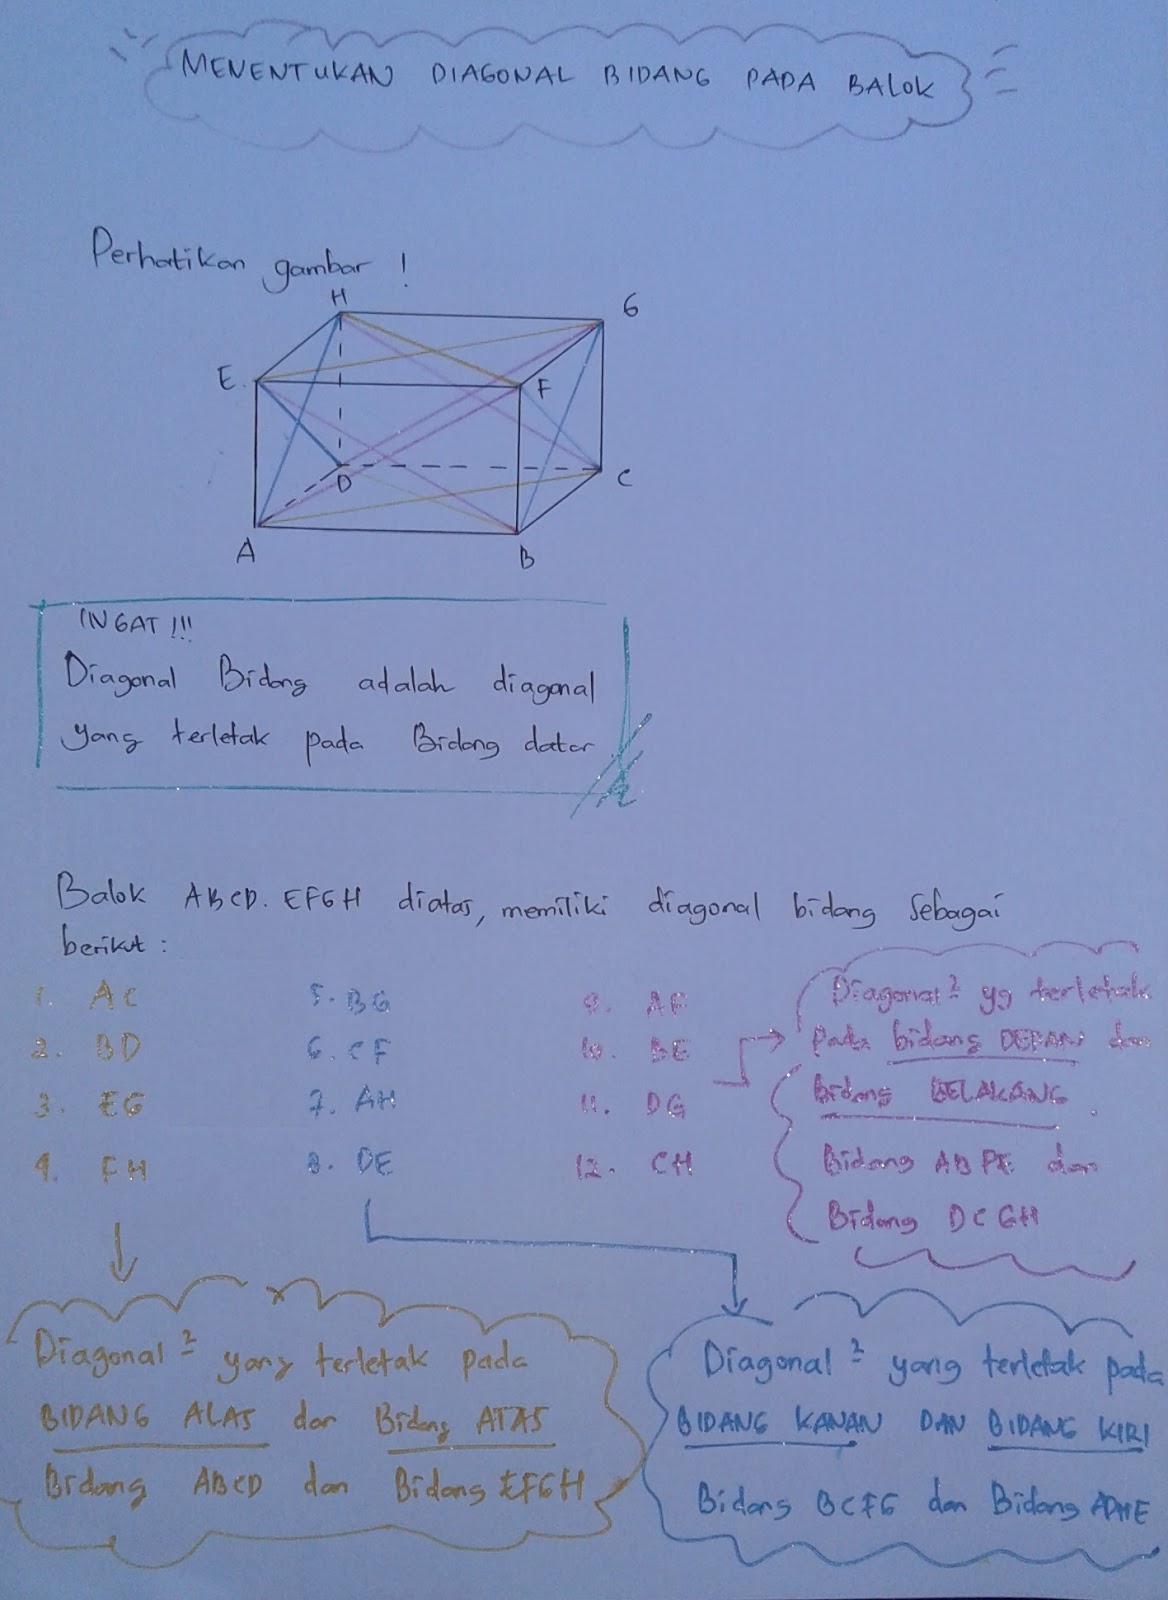 MENENTUKAN DIAGONAL BIDANG PADA BALOK
Perhatikan gambar !
H
G
E
F
D
C
A
B
INGAT !!!
Diagonal Bidang adalah diagonal
yang terletak pada Bidang datar
Balok ABCD. EFGH diatas, memiliki diagonal bidang sebagai
berikut :
1. AC
2. BD
3. EG
4. FH
5. BG
6. CF
7. AH
8. DE
9. AF
10. BE
11. DG
12. CH
Diagonal² yg terletak
pada bidang DEPAN dan
Bidang BELAKANG.
Bidang ABFE dan
Bidang DCGH
Diagonal² yang terletak pada
BIDANG ALAS dan Bidang ATAS
Bidang ABCD dan Bidang EFGH
Diagonal² yang terletak pada
BIDANG KANAN DAN BIDANG KIRI
Bidang BCFG dan Bidang ADHE